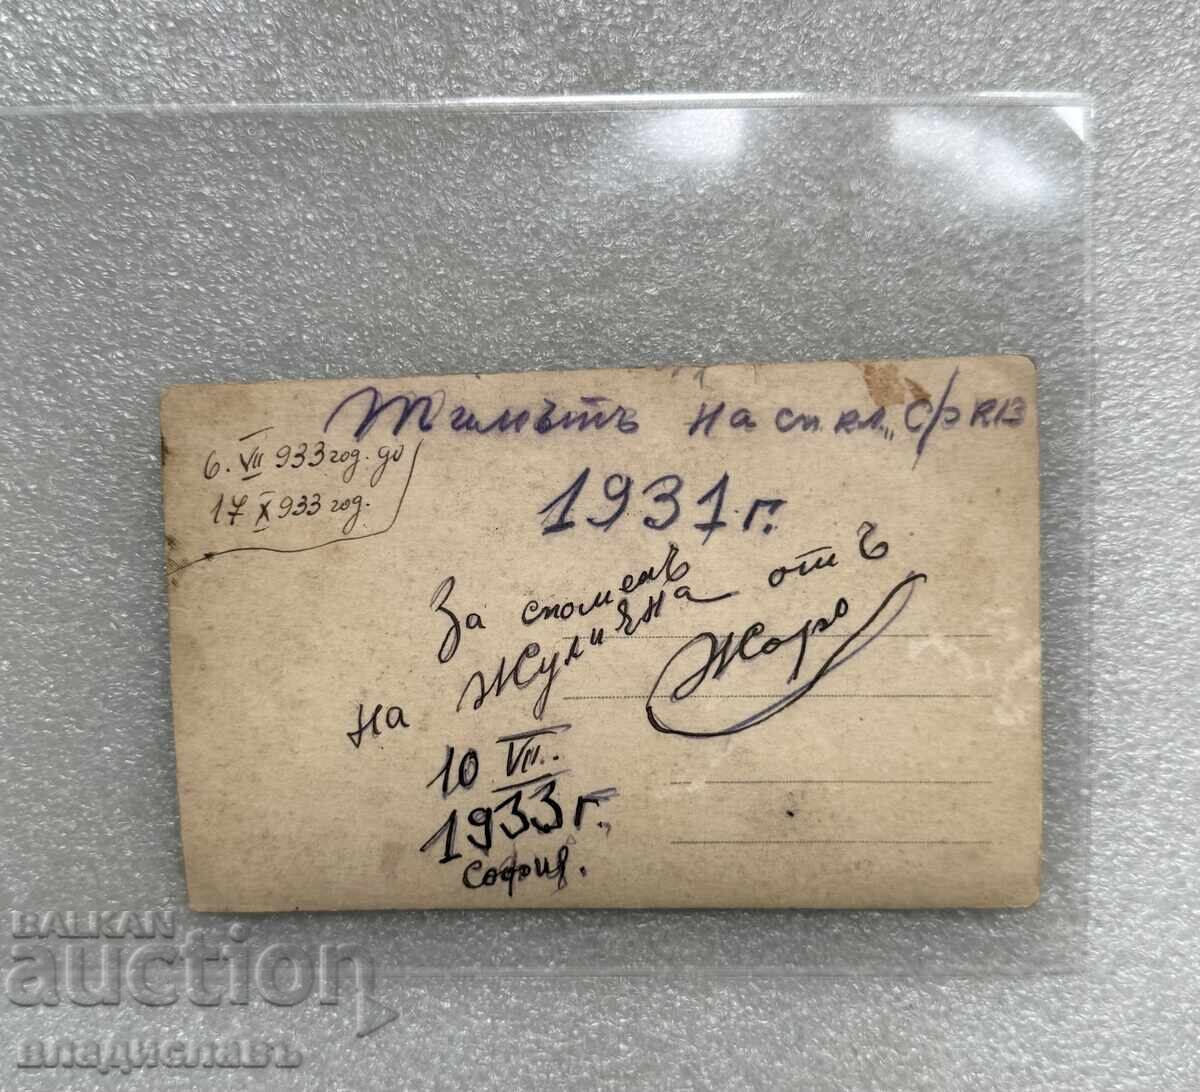 Тимътъ на сп. кл. „С/з
6. VII 933 год. до
17 X 933 год.
1931 г.
За споменъ
на Жулияна отъ
Жоро
10 VII.
1933 г.
София.
BALKAN
auction
владиславъ